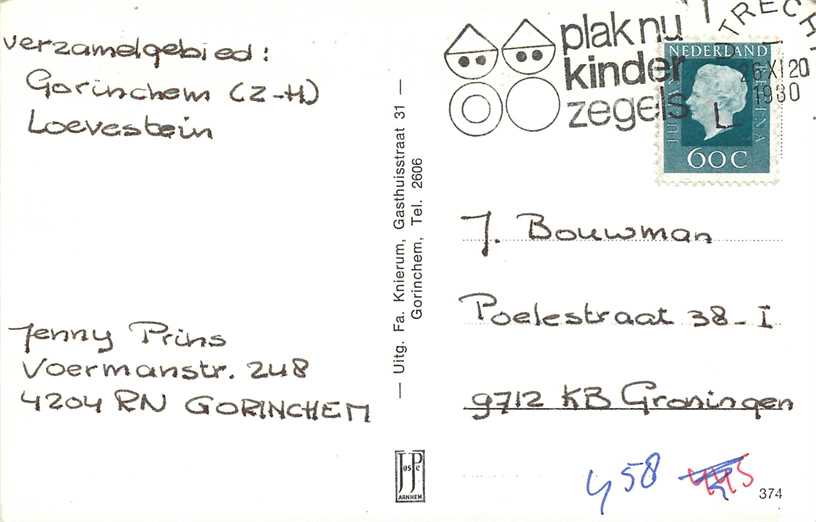 verzamelgebied:
Gorinchem (Z-H)
Loevestein
Jenny Prins
Voermanstr. 248
4204 RN GORINCHEM
— Uitg. Fa. Knierum, Gasthuisstraat 31 —
Gorinchem, Tel. 2606
JosPé
ARNHEM
plak nu
kinder
zegels
TRECHT
26 XI 20
1980
NEDERLAND
60 C
J. Bouwman
Poelestraat 38-I
9712 KB Groningen
458
374